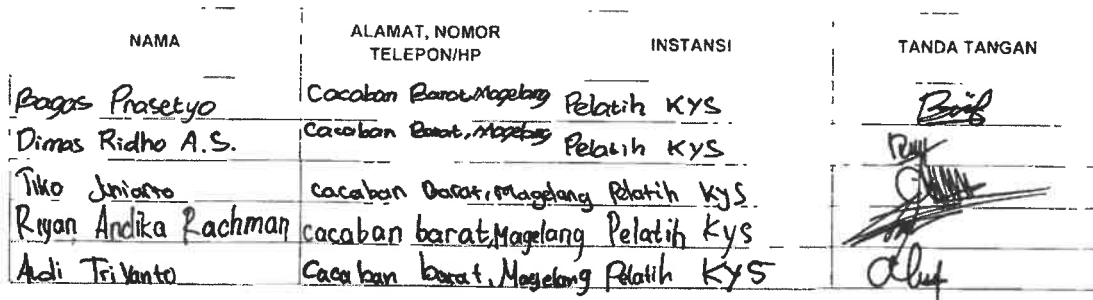 NAMA ALAMAT, NOMOR TELEPON/HP INSTANSI TANDA TANGAN
Bagas Prasetyo Cacaban Barat, Magelang Pelatih KYS
Dimas Ridho A.S. Cacaban Barat, Magelang Pelatih KYS
Tiko Juniarto cacaban Barat, Magelang Pelatih KYS
Riyan Andika Rachman cacaban barat, Magelang Pelatih Kys
Andi Tri Yanto Cacaban barat, Magelang Pelatih KYS